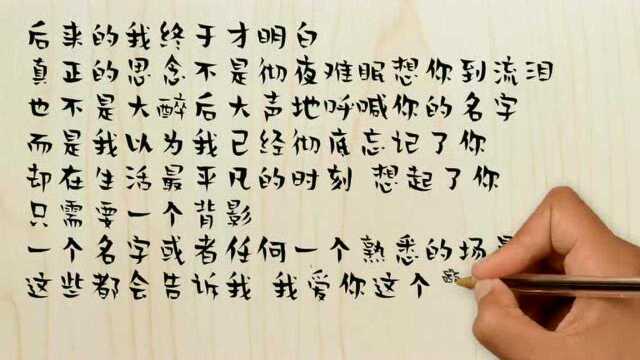 后来的我终于才明白
真正的思念不是彻夜难眠想你到流泪
也不是大醉后大声地呼喊你的名字
而是我以为我已经彻底忘记了你
却在生活最平凡的时刻 想起了你
只需要一个背影
一个名字或者任何一个熟悉的场
这些都会告诉我 我爱你这个